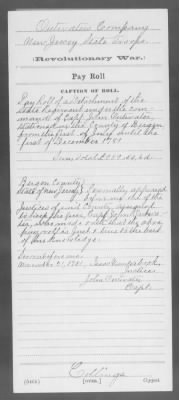 Outwater's Company
New Jersey State Troops
(Revolutionary War.)
Pay Roll
CAPTION OF ROLL.
Pay Roll of a Detachment of the
State Regiment under the com-
mand of Capt. John Outwater
stationed in the County of Bergen
from the first of July until the
first of December 1781
Sum total £
Bergen County
State of New Jersey } Personally appeared
before me one of the
Justices of said County
to keep the peace, Capt. John Outwa-
ter, who made oath that the above
pay roll is just & true to the best
of his knowledge.
Sworn before me
1781. Isaac
Justice
John Outwater
Capt.
Collings
(543c) [OVER.] Copyist.